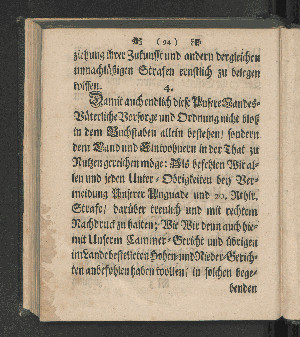 ( 94 )
ziehung ihrer Zukunfft und andern dergleichen
unnachläßigen Strafen ernstlich zu belegen
wissen.
4.
Damit auch endlich diese Unsere Landes-
Väterliche Vorsorge und Ordnung nicht bloß
in dem Buchstaben allein bestehen/ sondern
dem Land und Einwohnern in der That zu
Nutzen gereichen möge: Als befehlen Wir al-
len und jeden Unter-Obrigkeiten bey Ver-
meidung Unserer Ungnade und 20. Rthlr.
Strafe/ darüber treulich und mit rechtem
Nachdruck zu halten; Wie Wir denn auch hie-
mit Unserm Cammer-Gericht und übrigen
im Lande bestelleten Hohen-und Nieder-Gerich-
ten anbefohlen haben wollen/ in solchen bege-
benden